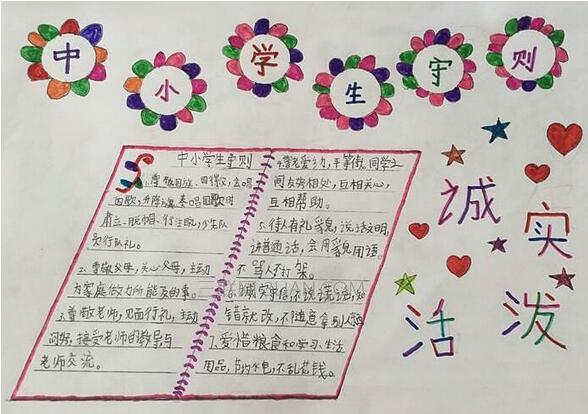 中小学生守则
中小学生守则
1.尊敬国旗、国徽,会唱
国歌,升降旗、奏唱国歌时
肃立、脱帽、行注目礼,少先队
员行队礼。
2.尊敬父母,关心父母,主动
为家庭做力所能及的事。
3.尊敬老师,见面行礼,主动
问好,接受老师的教导与
老师交流。
4.尊老爱幼,平等待人,同学之
间友好相处,互相关心,
互相帮助。
5.待人有礼貌,说话文明,
讲普通话,会用礼貌用语。
不骂人不打架。
6.诚实守信不说谎话,知
错就改,不随意拿别人东西
7.爱惜粮食和学习、生活
用品,节约水电,不乱花钱。
诚
实
活
泼